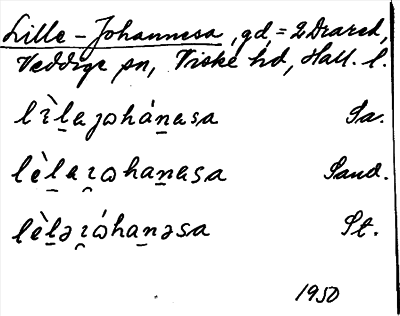 Lille-Johannesa, gd, = 2 Drared,
Veddige sn, Viske hd, Hall. l.
lìl̠a jωhán̠asa Sa.
lèl̠a i̯ωhan̠asa Sand.
lèl̠ə i̯ώhan̠əsa St.
1950